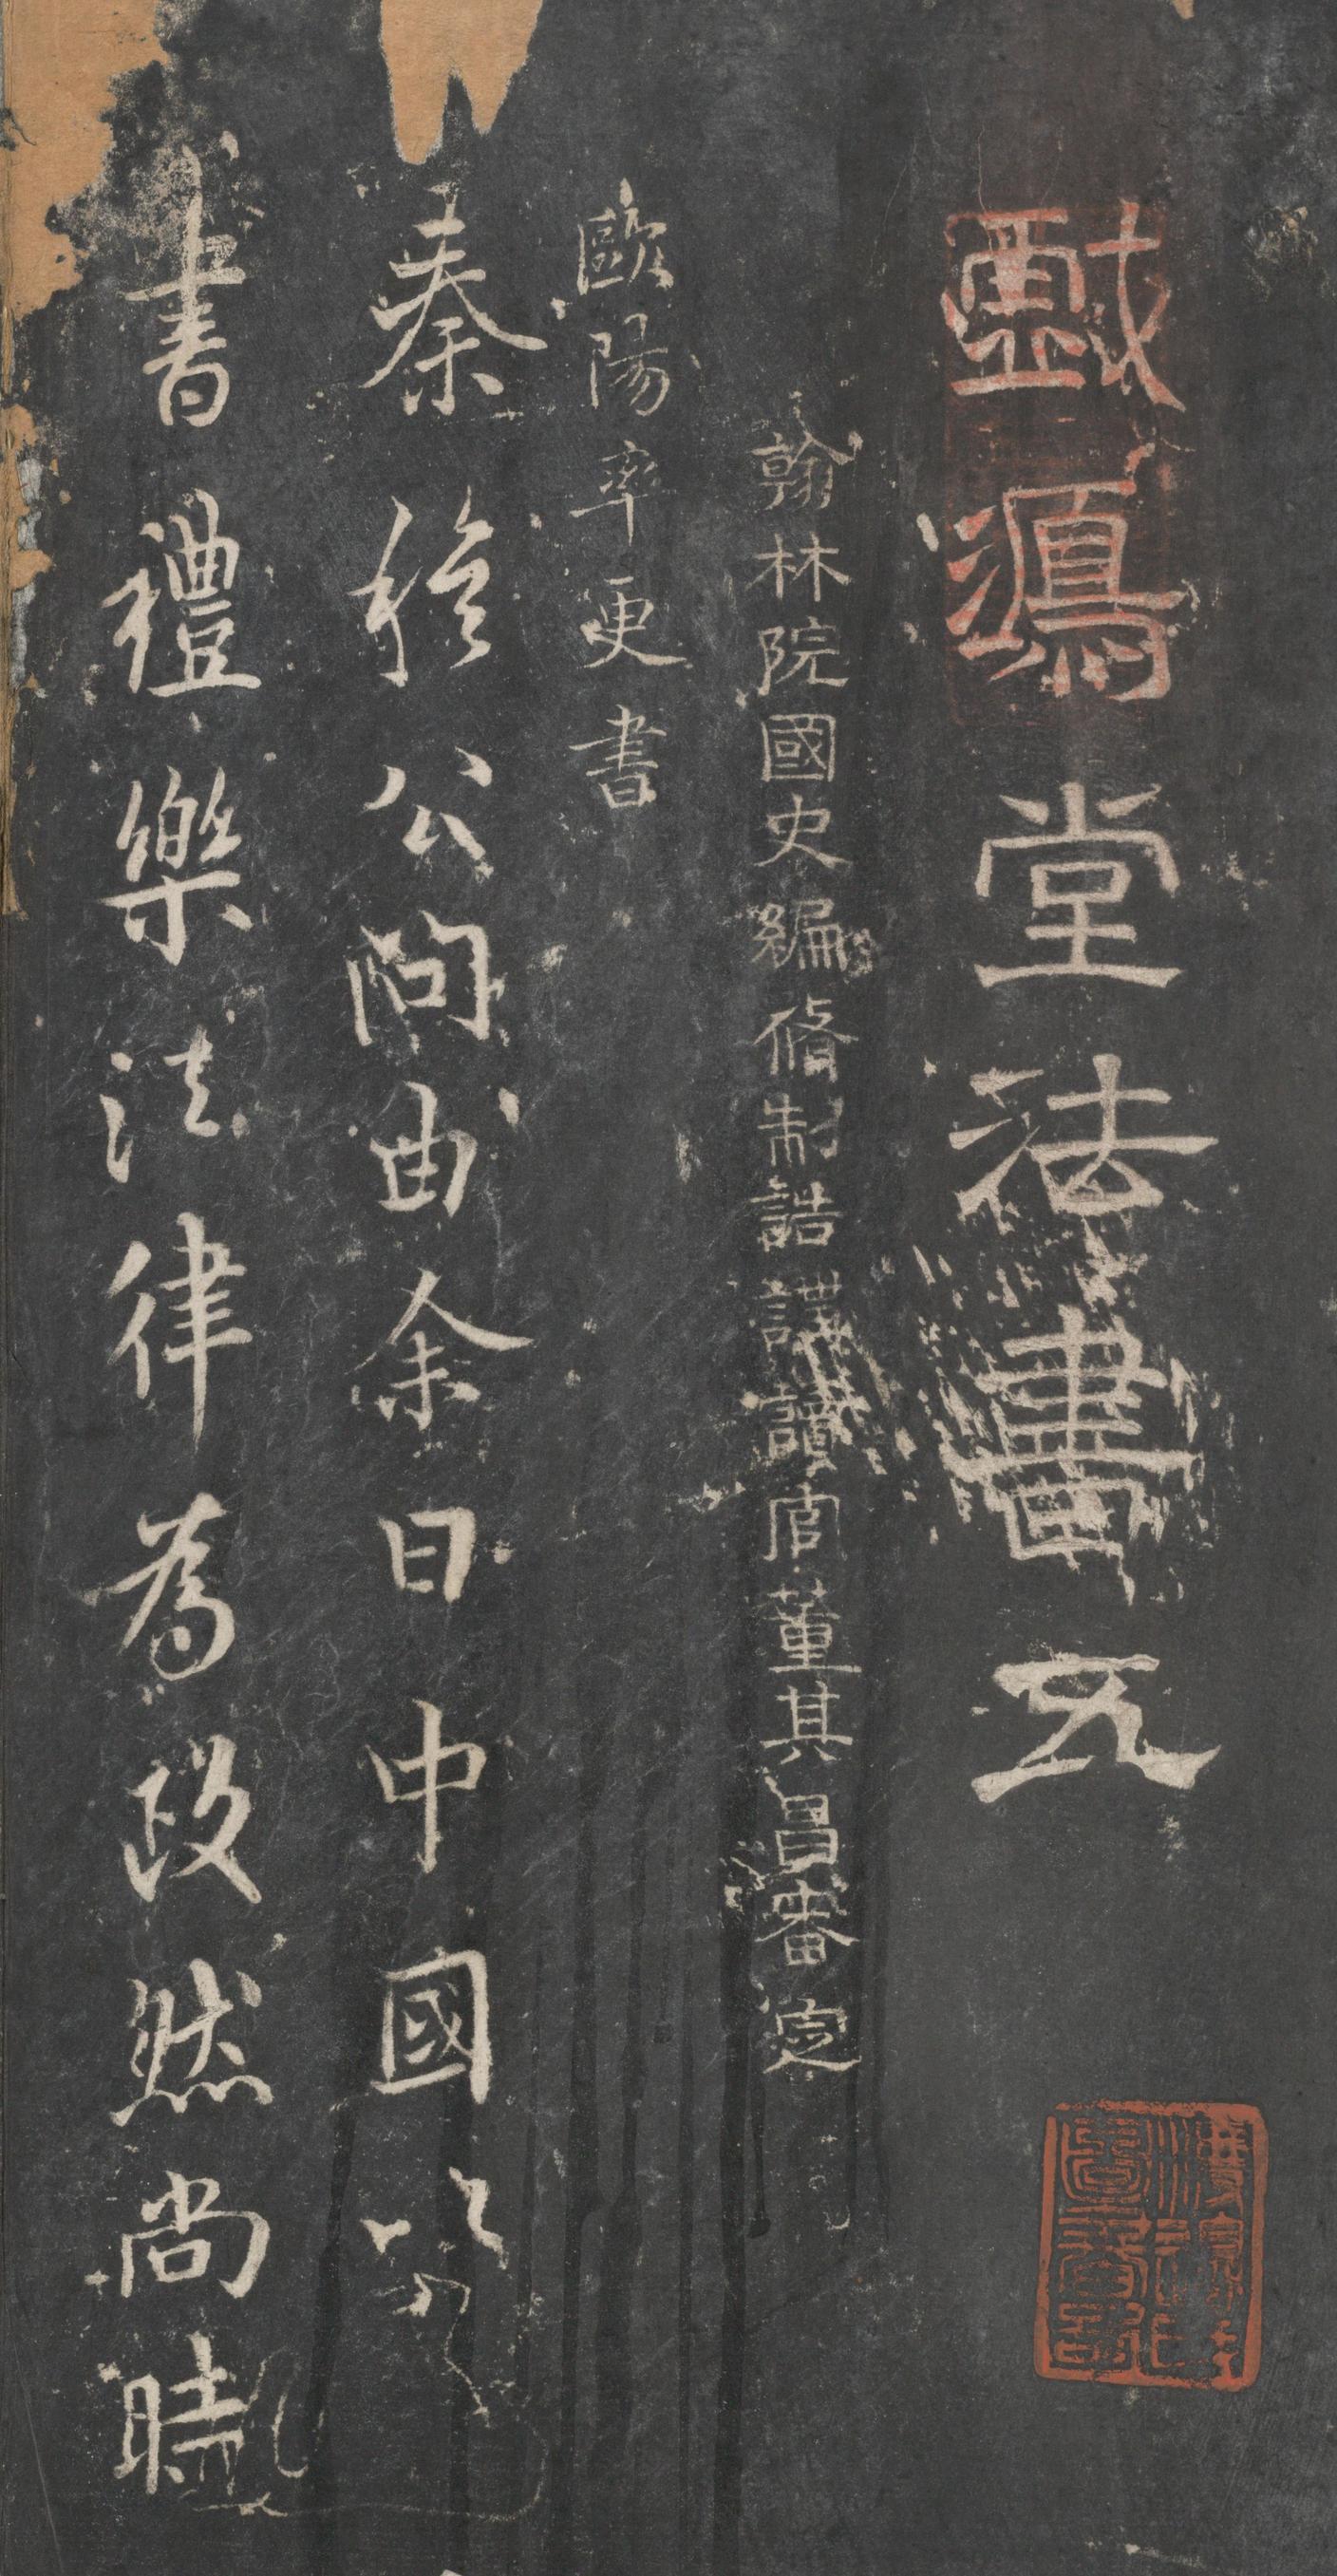 戲鴻堂法書五
翰林院國史編脩制誥講讀官董其昌審定
歐陽率更書
秦穆公問由余曰中國以
詩書禮樂法律為政然尚時